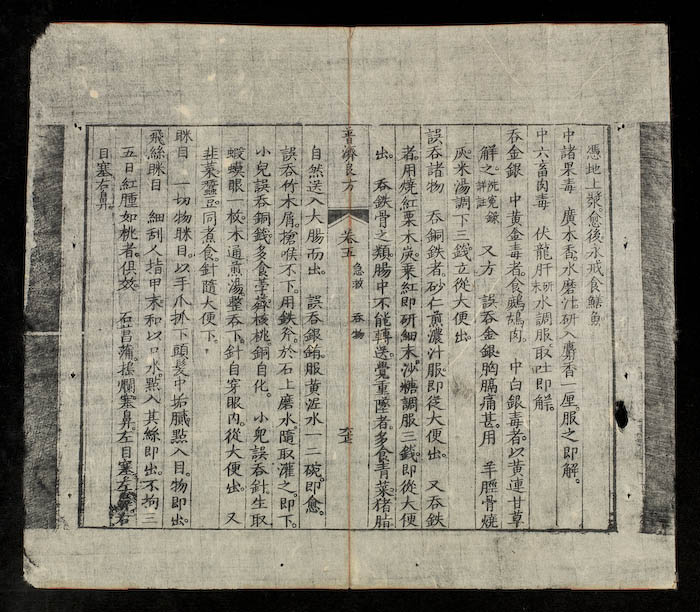 憑地上漿愈後永戒食鱔魚
中諸果毒　廣木香水磨汁研入麝香一厘服之即解
中六畜肉毒　伏龍肝研末水調服取吐即解
吞金銀　中黃金毒者食鷓鴣肉　中白銀毒者以黃連甘草
解之洗冤錄詳註　又方　誤吞金銀胸膈痛甚用　羊脛骨燒
灰米湯調下三錢立從大便出
誤吞諸物　吞銅鉄者砂仁煎濃汁服即從大便出　又吞鉄
者用燒紅栗木炭乗紅即研細末沙糖調服三錢即從大便
出　吞鉄骨之類腸中不能轉送覺重墜者多食青菜猪脂
普濟良方　卷五　急救　吞物
自然送入大腸而出　誤吞銀銹服黃泥水一二碗即愈
誤吞竹木屑搶喉不下用鉄斧於石上磨水隨取灌之即下
小兒誤吞銅錢多食荸薺核桃銅自化　小兒誤吞針生取
蝦蟆眼一枚木通煎湯整吞下針自穿眼內從大便出　又
韭菜蠶豆同煮食針隨大便下
眯目　一切物眯目以手爪抓下頭髮中垢膩點入目物即出
飛絲眯目　細刮父指甲末和以口水點入其絲即出不拘三
五日紅腫如桃者俱效　石菖蒲搥爛塞鼻左目塞左鼻右
目塞右鼻